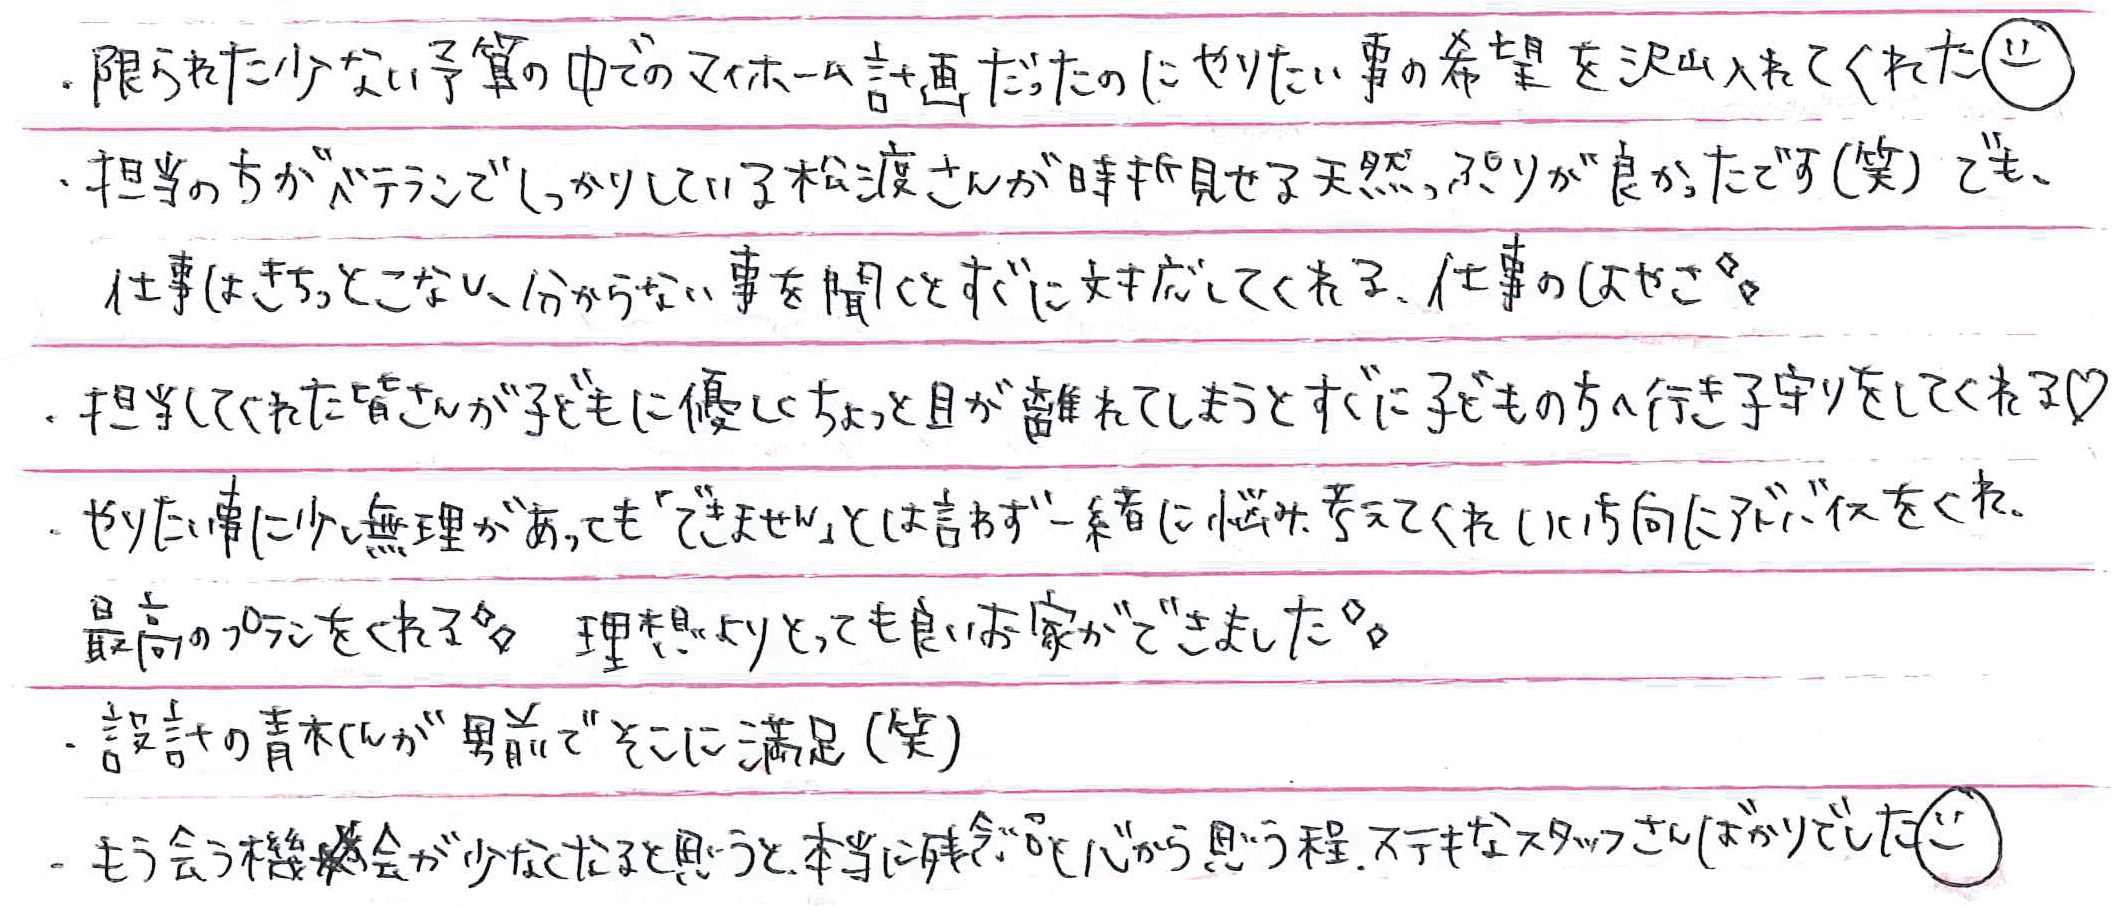 ・限られた少ない予算の中でのマイホーム計画だったのにやりたい事の希望を沢山入れてくれた
・担当の方がベテランでしっかりしている松渡さんが時折見せる天然っぷりが良かったです(笑)でも、
仕事はきちっとこなし、分からない事を聞くとすぐに対応してくれる、仕事のはやさ
・担当してくれた皆さんが子どもに優しくちょっと目が離れてしまうとすぐに子どもの方へ行き子守りをしてくれる♡
・やりたい事に少し無理があっても「できません」とは言わず一緒に悩み、考えてくれいい方向にアドバイスをくれ、
最高のプランをくれる 理想よりとっても良いお家ができました
・設計の青木くんが男前でそこに満足(笑)
・もう会う機会が少なくなると思うと、本当に残念。と心から思う程、ステキなスタッフさんばかりでした